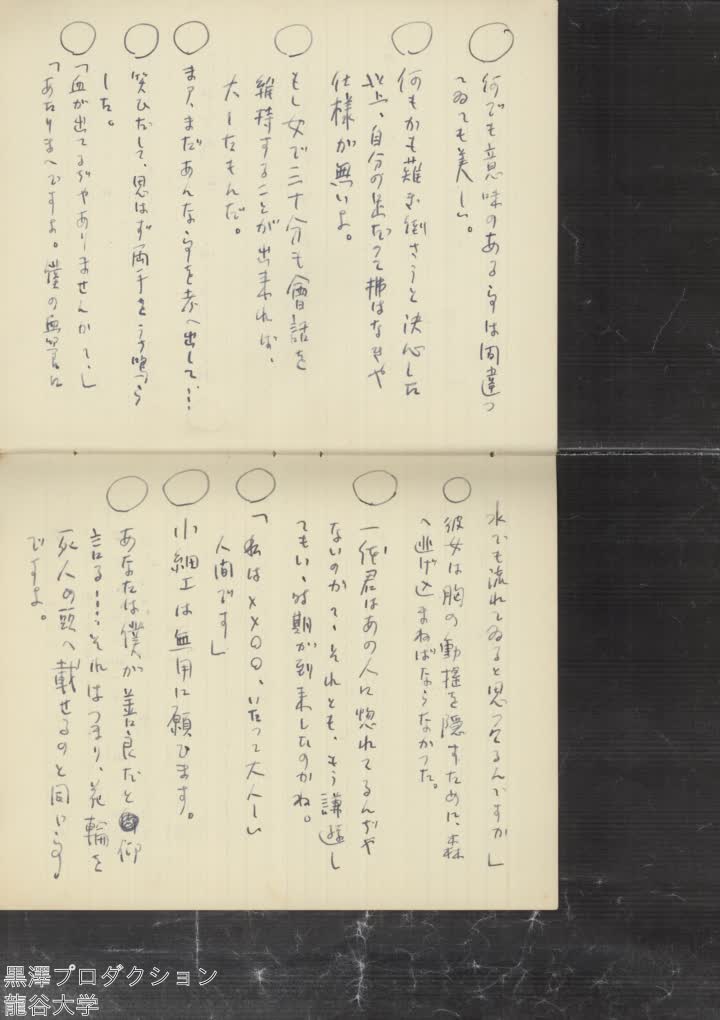 ○何でも意味のある事は間違つ
てゐても美しい。
○何もかも薙ぎ倒さうと決心した
以上、自分の鼻だつて構はなきや
仕様が無いよ。
○もし女で三十分も會話を
維持することが出来れば、
大したもんだ。
○まア、まだあんな事を考へ出して…
○笑ひだして、思はず両手をうち鳴らし
した。
○「血が出てるぢやありませんかて」
「あたりまへですよ。僕の血管に
水でも流れてゐると思つてるんですか」
○彼女は胸の動揺を隠すために、森
へ逃げ込まねばならなかつた。
○一体君はあの人に惚れてるんぢや
ないのかて、それとも、もう謙遜し
てもいゝ時期が到来したのかね。
○「私は××〇〇、いたつて大人しい
人間です」
○小細工は無用に願ひます。
○あなたは僕が善良だと仰
言る……それはつまり、花輪を
死人の頭へ載せるのと同じ事
ですよ。
黒澤プロダクション
龍谷大学